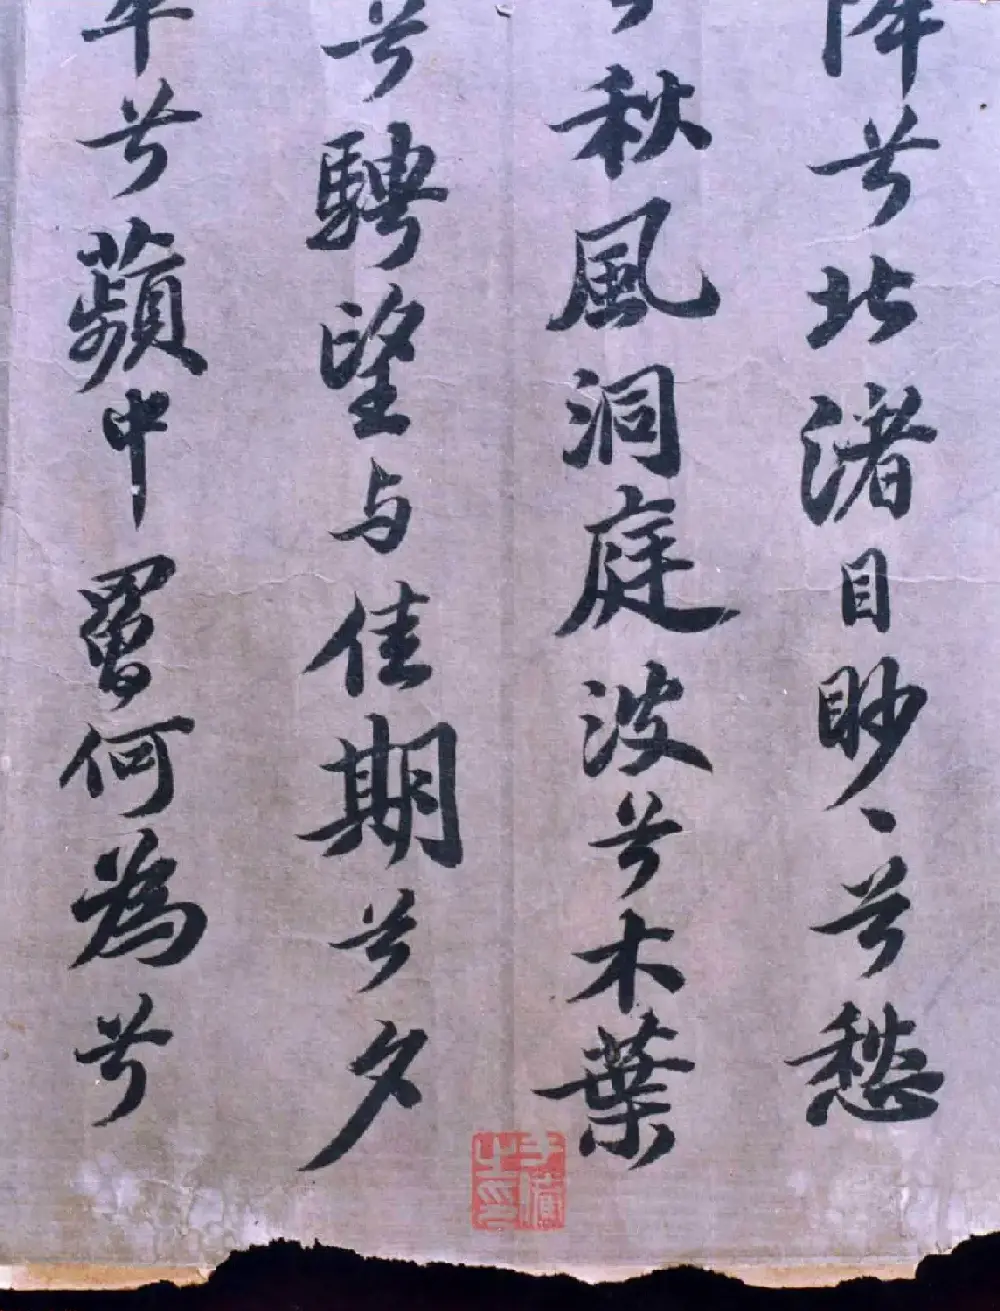 降兮北渚目眇〻兮愁
秋風洞庭波兮木葉
兮騁望与佳期兮夕
萃兮蘋中罾何為兮